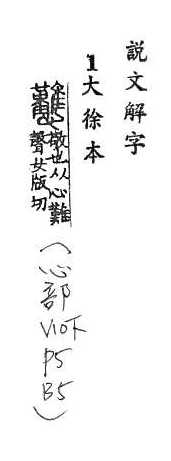 説文解字
1大徐本
戁 敬也从心難
聲女版切
(心部
V10下
P5
B5)